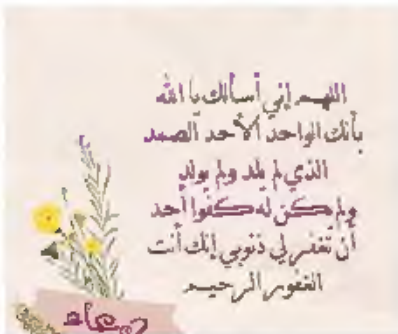 اللهم إني أسألك يا الله
بأنك الواحد الأحد الصمد
الذي لم يلد ولم يولد
ولم يكن له كفوا أحد
أن تغفر لي ذنوبي إنك أنت
الغفور الرحيم
دعاء